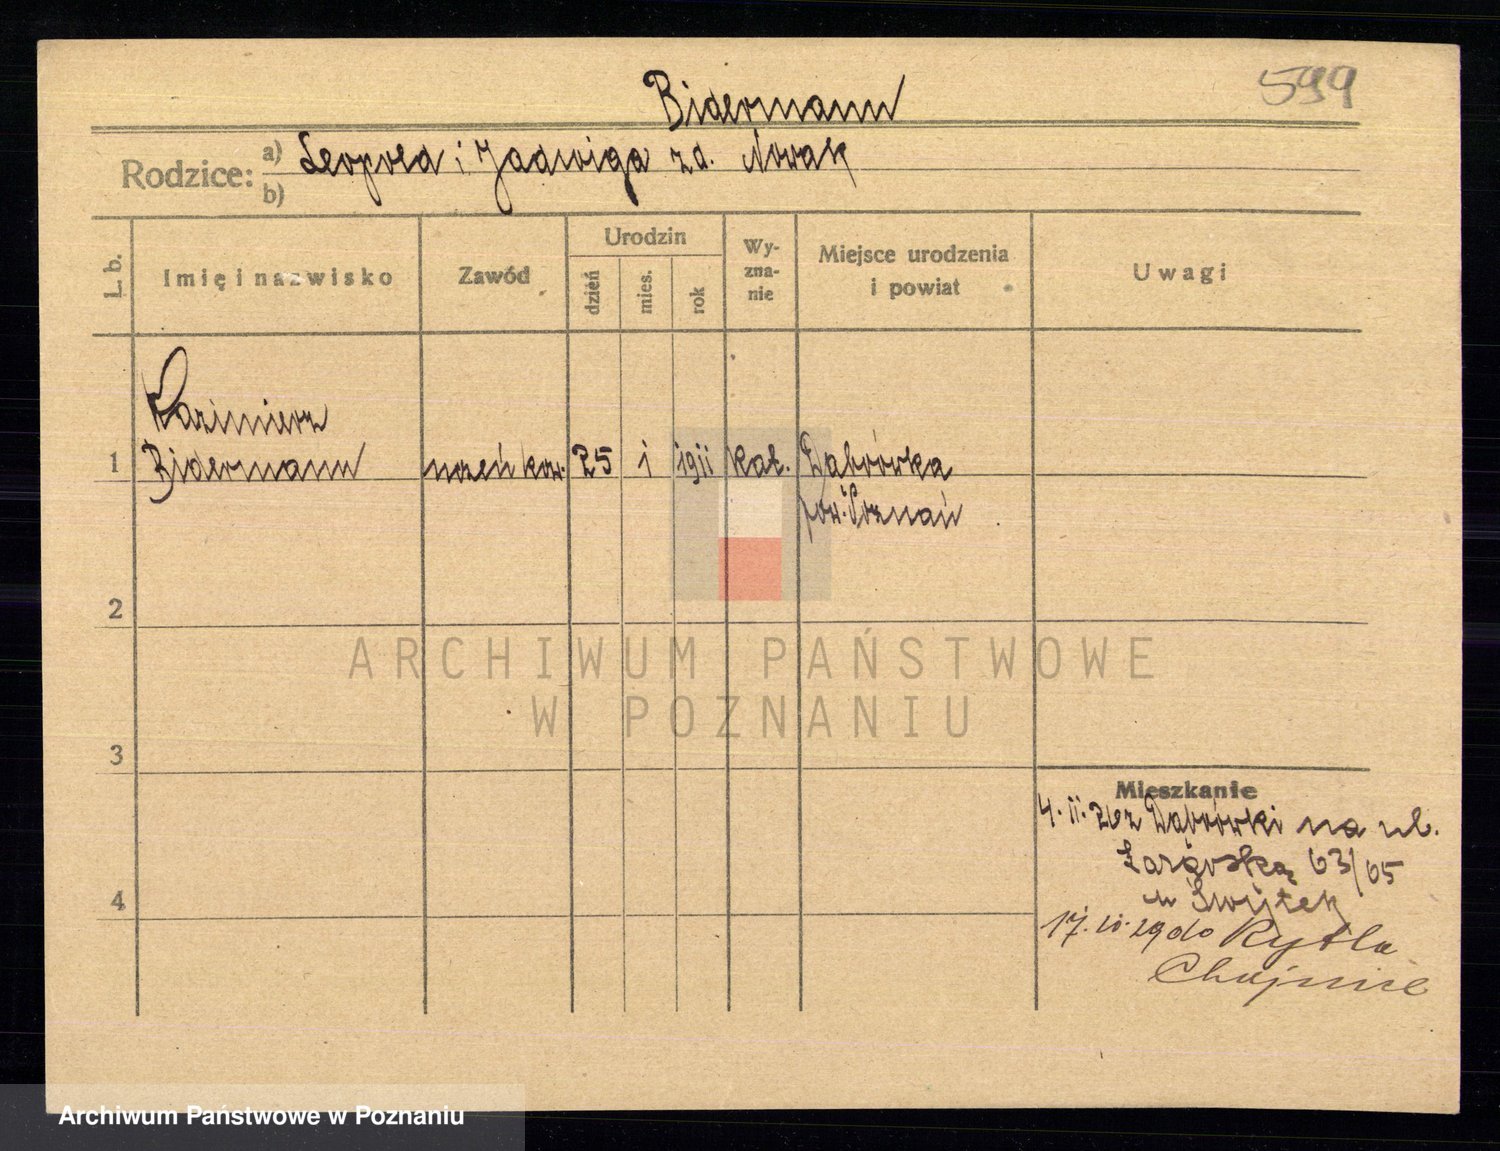 599
Bidermann
Rodzice: a) Leopold i Jadwiga zd. Nowak
b)
L. b. Imię i nazwisko Zawód Urodzin dzień mies. rok Wy-zna-nie Miejsce urodzenia i powiat Uwagi
Kazimierz
1 Bidermann uczeń kow. 25 i 1911 kat. Dąbrówka
pow. Poznań
2
ARCHIWUM PAŃSTWOWE
W POZNANIU
3
Mieszkanie
4. ii. 26 z Dąbrówki na ul.
63/65
4
u
17. 29 do Rytla
Chojnice
Archiwum Państwowe w Poznaniu